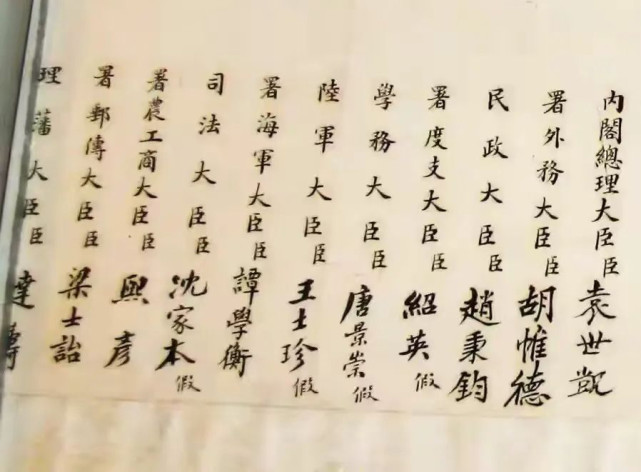 內閣總理大臣臣袁世凱
署外務大臣臣胡惟德
民政大臣臣趙秉鈞
署度支大臣臣紹英假
學務大臣臣唐景崇假
陸軍大臣臣王士珍假
署海軍大臣臣譚學衡
司法大臣臣沈家本假
署農工商大臣臣熙彥
署郵傳大臣臣梁士詒
理藩大臣臣達壽